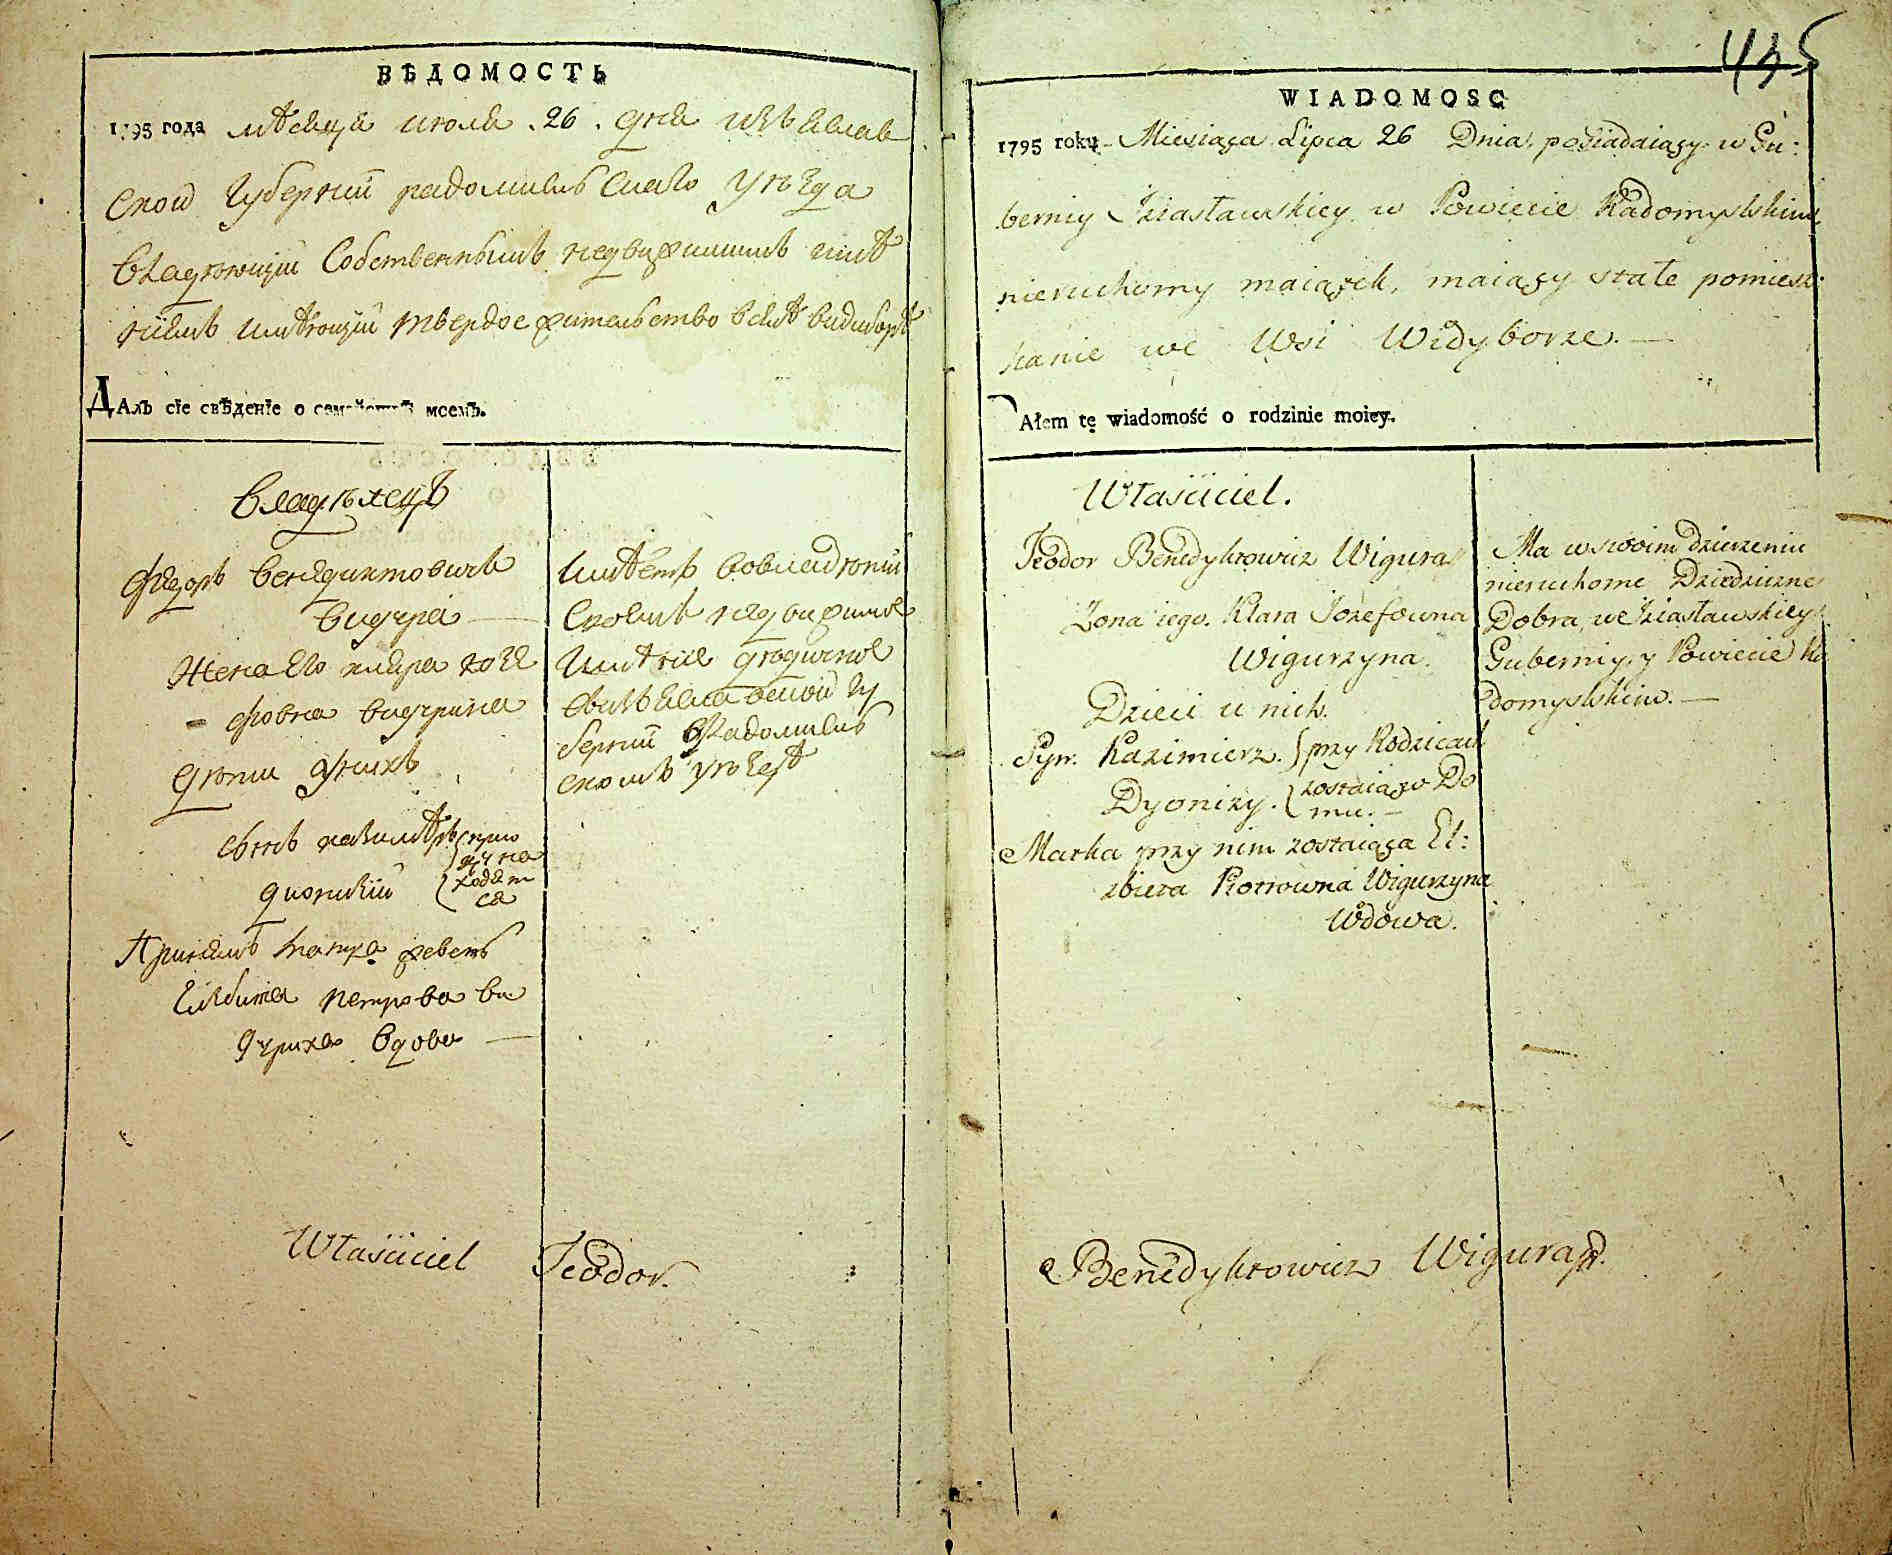 ВѢДОМОСТЬ
1795 года мѣсяца июля . 26 . дня изъяслав
ской губернїи радомысльскаго уѣзда
владѣющїй собственнымъ недвижимымъ имѣ
нїемъ имѣющїй твердое жительство въ селѣ видыборѣ
Далъ сїе свѣденїе о семействѣ моемъ.
владѣлецъ
Федоръ бенедиктовичъ
вигура
жена его клара юзе
фовна вигурина
дѣти у нихъ
сынъ казимѣръ при
дионизїй
ходят
ся
матка живетъ
елзбита петрова ви
гуриха вдова
имѣетъ во владѣнїи
своемъ недвижимое
имѣнїе дѣдичное
въ изъяславской гу
бернїи в радомысль
скомъ уѣздѣ
Właściciel Teodor.
445
WIADOMOSC
1795 roku Miesiąca Lipca 26 Dnia, posiadaiący w Gu:
berniy Iziasławskiey w Powiecie Radomyslskim
nieruchomy maiątek, maiący stałe pomiesz:
kanie we Wsi Widyborze.
DAłem tę wiadomość o rodzinie moiey.
Właściciel.
Teodor Benedyktowicz Wigura
Zona iego. Klara Jozefowna
Wigurzyna.
Dzieci u nich.
Syn. Kazimierz. przy Rodzicach
Dyonizy. zostaiący w Do
mu.
Matka przy nim zostaiąca El:
zbieta Piotrowna Wigurzyna
Wdowa.
Ma w swoim dzierzeniu
nieruchome Dziedziczne
Dobra, we Iziasławskiey
Guberniy, y Powiecie Ra
domyslskim.
Benedyktowicz Wigura